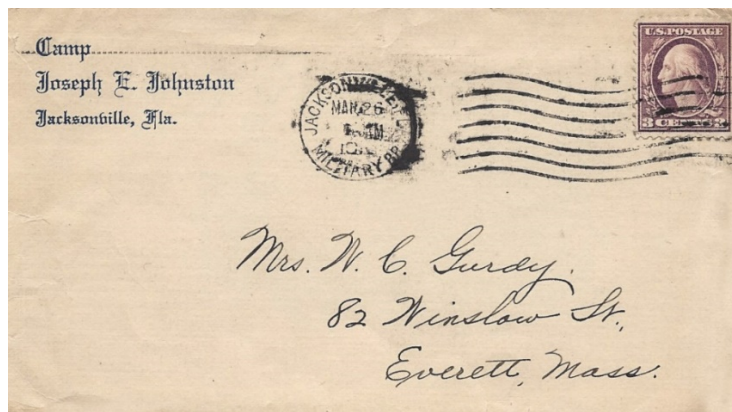 Camp
Joseph E. Johnston
Jacksonville, Fla.
JACKSONVILLE, FLA.
MAR 26
AM
MILITARY BR.
U.S. POSTAGE
3 CENTS 3
Mrs. W. C. Gurdy.
82 Winslow St.,
Everett, Mass.